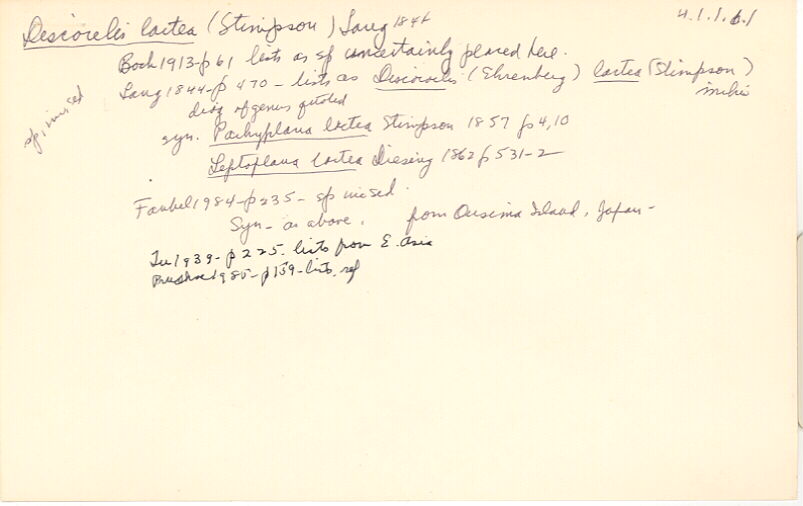 Discocelis lactea (Stimpson) Lang 1844 4.1.1.6.1
Bock 1913-p 61 lists as sp uncertainly placed here.
Lang 1844-p 470 - lists as Discocelis (Ehrenberg) lactea (Stimpson) mihi
diag of genus quoted
sp. inc sed
syn. Pachyplana lactea Stimpson 1857 p 4, 10
Leptoplana lactea Diesing 1862 p 531-2
Faubel 1984-p 235- sp inc sed.
Syn- as above. from Ousima Island, Japan-
Tu 1939-p 225. lists from E. Asia
Prudhoe 1985-p 139-lists, ref